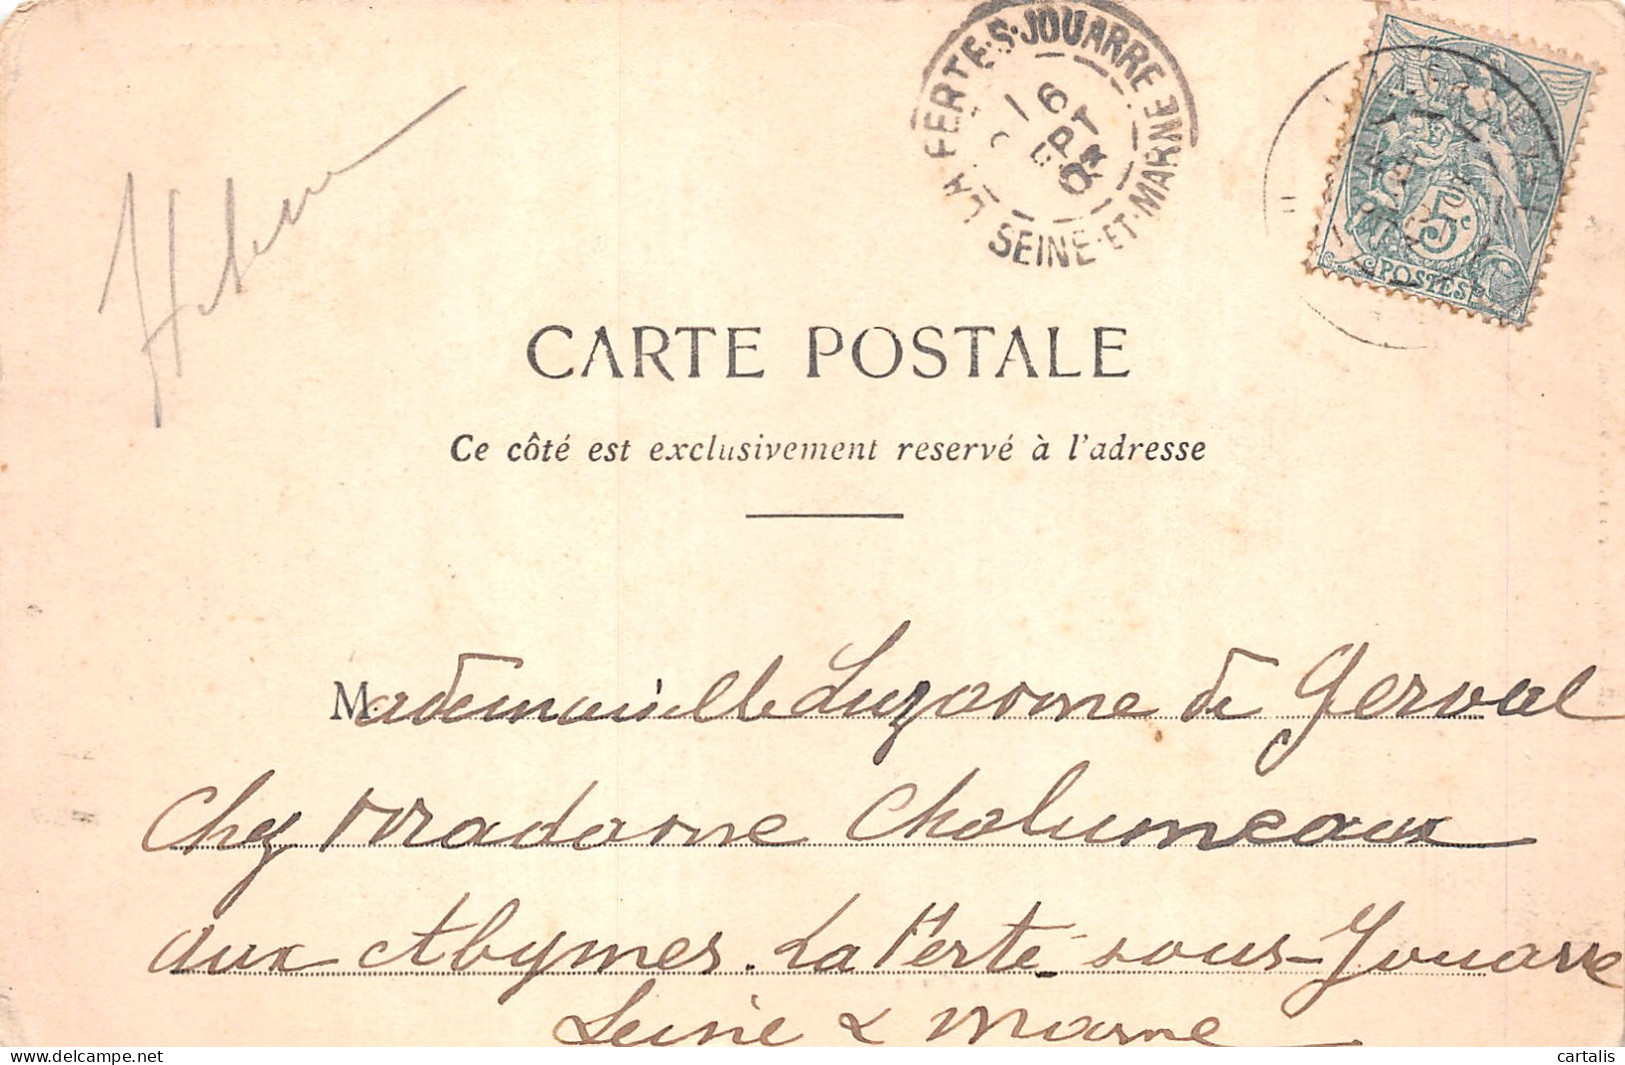 LA FERTE-S-JOUARRE
16
SEPT
03
SEINE-ET-MARNE
5c
POSTES
CARTE POSTALE
Ce côté est exclusivement reservé à l'adresse
Mademoiselle Suzanne de Gerval
Chez Madame Chalumeaux
aux Abymes. La Ferté-sous-Jouarre
Seine & Marne
cartalis